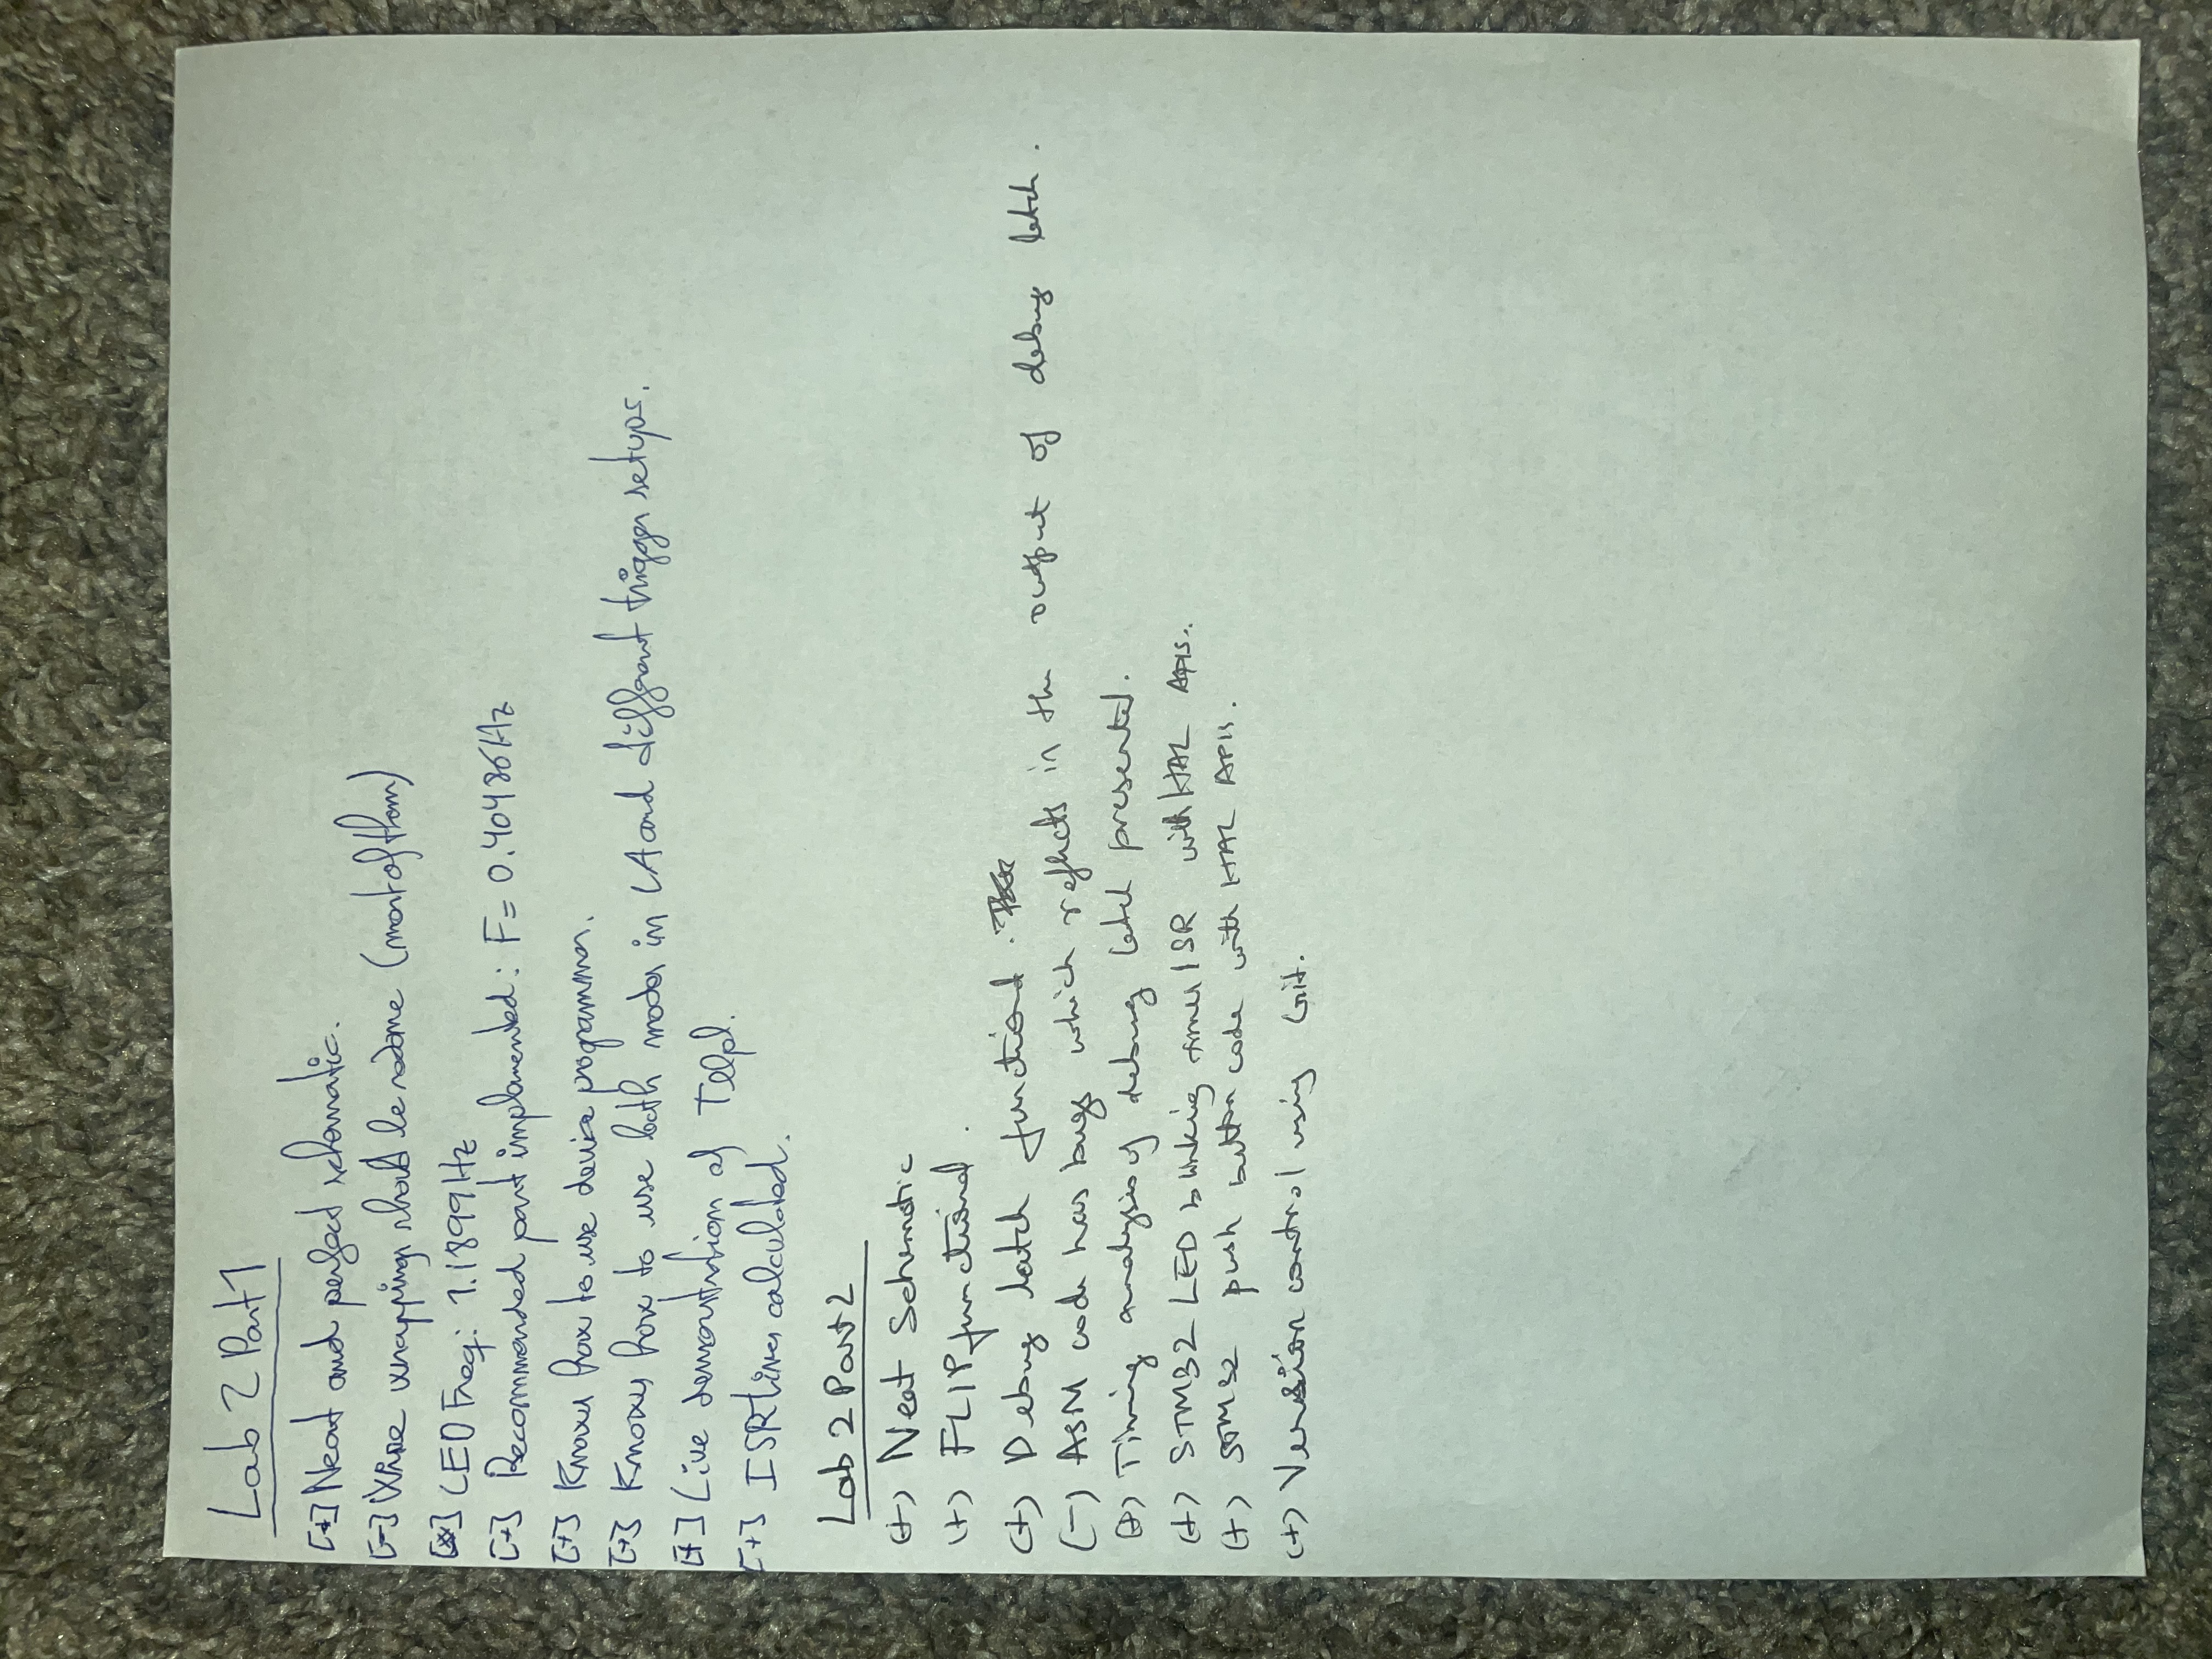 Lab 2 Part 1
[+] Neat and perfect schematic.
[-] Wire wrappings should be redone (most of them)
[*] LED Freq: 1.1899Hz
[+] Recommended part implemented: F= 0.40486Hz
[+] Knows how to use device programmer.
[+] Knows how to use both modes in LA and different trigger setups.
[+] Live demonstration of Tllpl.
[+] ISR times calculated.
Lab 2 Part 2
(+) Neat Schematic
(+) FLIP functional.
(+) Debug latch functional.
(-) ASM code has bugs which reflects in the output of debug latch.
(+) Timing analysis of debug latch presented.
(+) STM32 LED blinking timer ISR with HAL APIs.
(+) STM32 push button code with HAL APIs.
(+) Version control using Git.